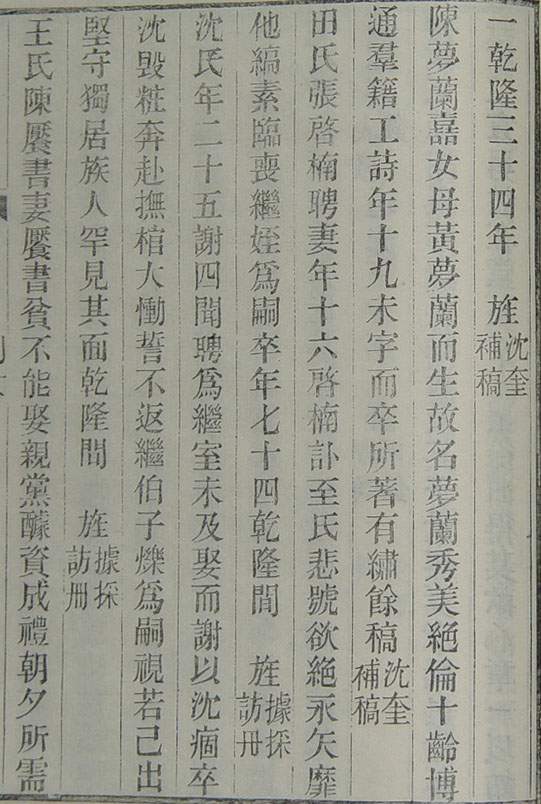 一乾隆三十四年　旌沈奎補稿
陳夢蘭嘉女母黃夢蘭而生故名夢蘭秀美絕倫十齡博
通羣籍工詩年十九未字而卒所著有繡餘稿沈奎補稿
田氏張啓楠聘妻年十六啓楠訃至氏悲號欲絕永矢靡
他縞素臨喪繼姪爲嗣卒年七十四乾隆間　旌據採訪冊
沈氏年二十五謝四聞聘爲繼室未及娶而謝以沈痼卒
沈毀粧奔赴撫棺大慟誓不返繼伯子爍爲嗣視若己出
堅守獨居族人罕見其面乾隆間　旌據採訪冊
王氏陳饜書妻饜書貧不能娶親黨醵資成禮朝夕所需